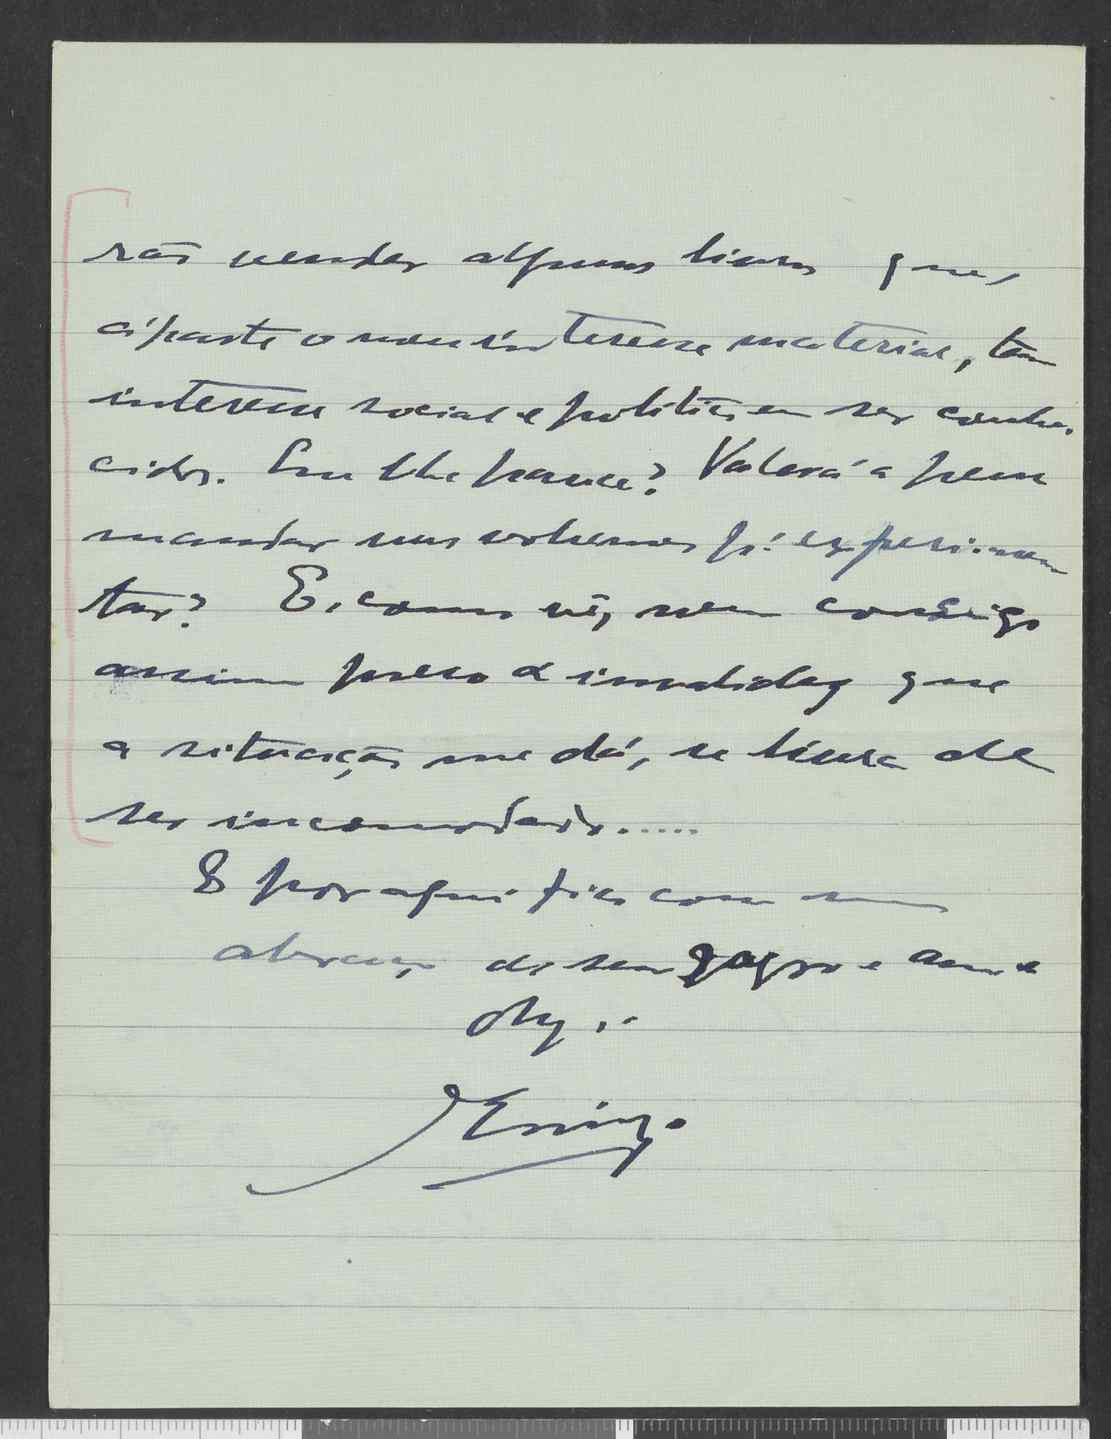 rão vender alguns livros que,
áparte o meu interesse material, tem
interesse social e politico em ser conhe-
cidos. Que lhe parece? Valerá a pena
mandar uns volumes p.ª experimen
tar? E, como vê, nem consigo
assim preso a invalidez que
a situação me dá, se livra de
ser incomodado.....
E por aqui fico com um
abraço do seu e am.º
obg.º